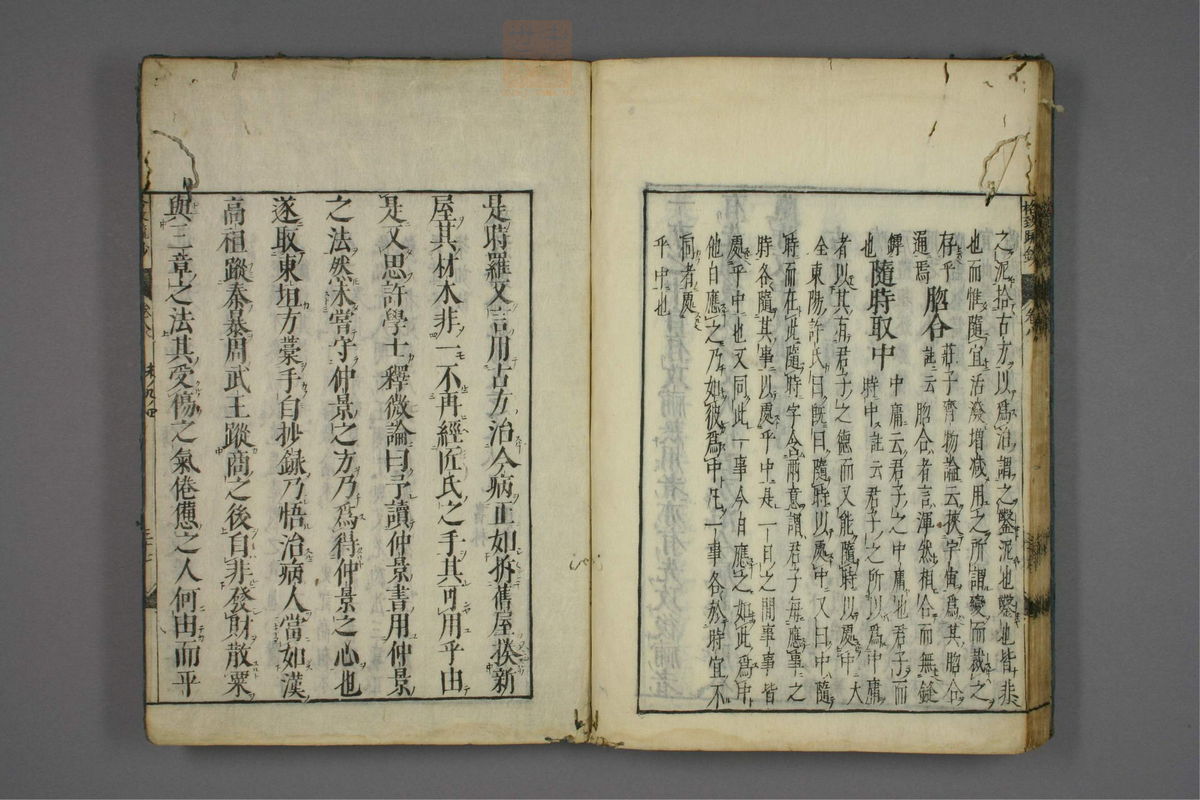 之泥拾古方以為治謂之鑿泥也鑿也皆非
也而惟隨宜活潑增減用之所謂變而裁之
存乎莊子齊物論云挾宇宙為其脗合
邇焉脗合註云脗合者言渾然相合而無縫
罅隨時取中中庸云君子之中庸也君子而
也時中註云君子之所以為中庸
者以其有君子之德而又能隨時以處中大
全東陽許氏曰既曰隨時以處中又曰中隨
時而在此隨時字含兩意謂君子每應事之
時各隨其事以處乎中是一日之間事事皆
處乎中也又同此一事今日應之如此為中
他日應之乃如彼為中凡一事各於時宜不
同者處
乎中也
是時羅又言用古方治今病正如拆舊屋揍新
屋其材木非一不再經匠氏之手其可用乎由
是又思許學士釋微論曰予讀仲景書用仲景
之法然未嘗守仲景之方乃為得仲景之心也
遂取東垣方藁手自抄錄乃悟治病人當如漢
高祖蹤秦暴周武王蹤商之後自非發財散粟
與三章之法其受傷之氣倦憊之人何由而平